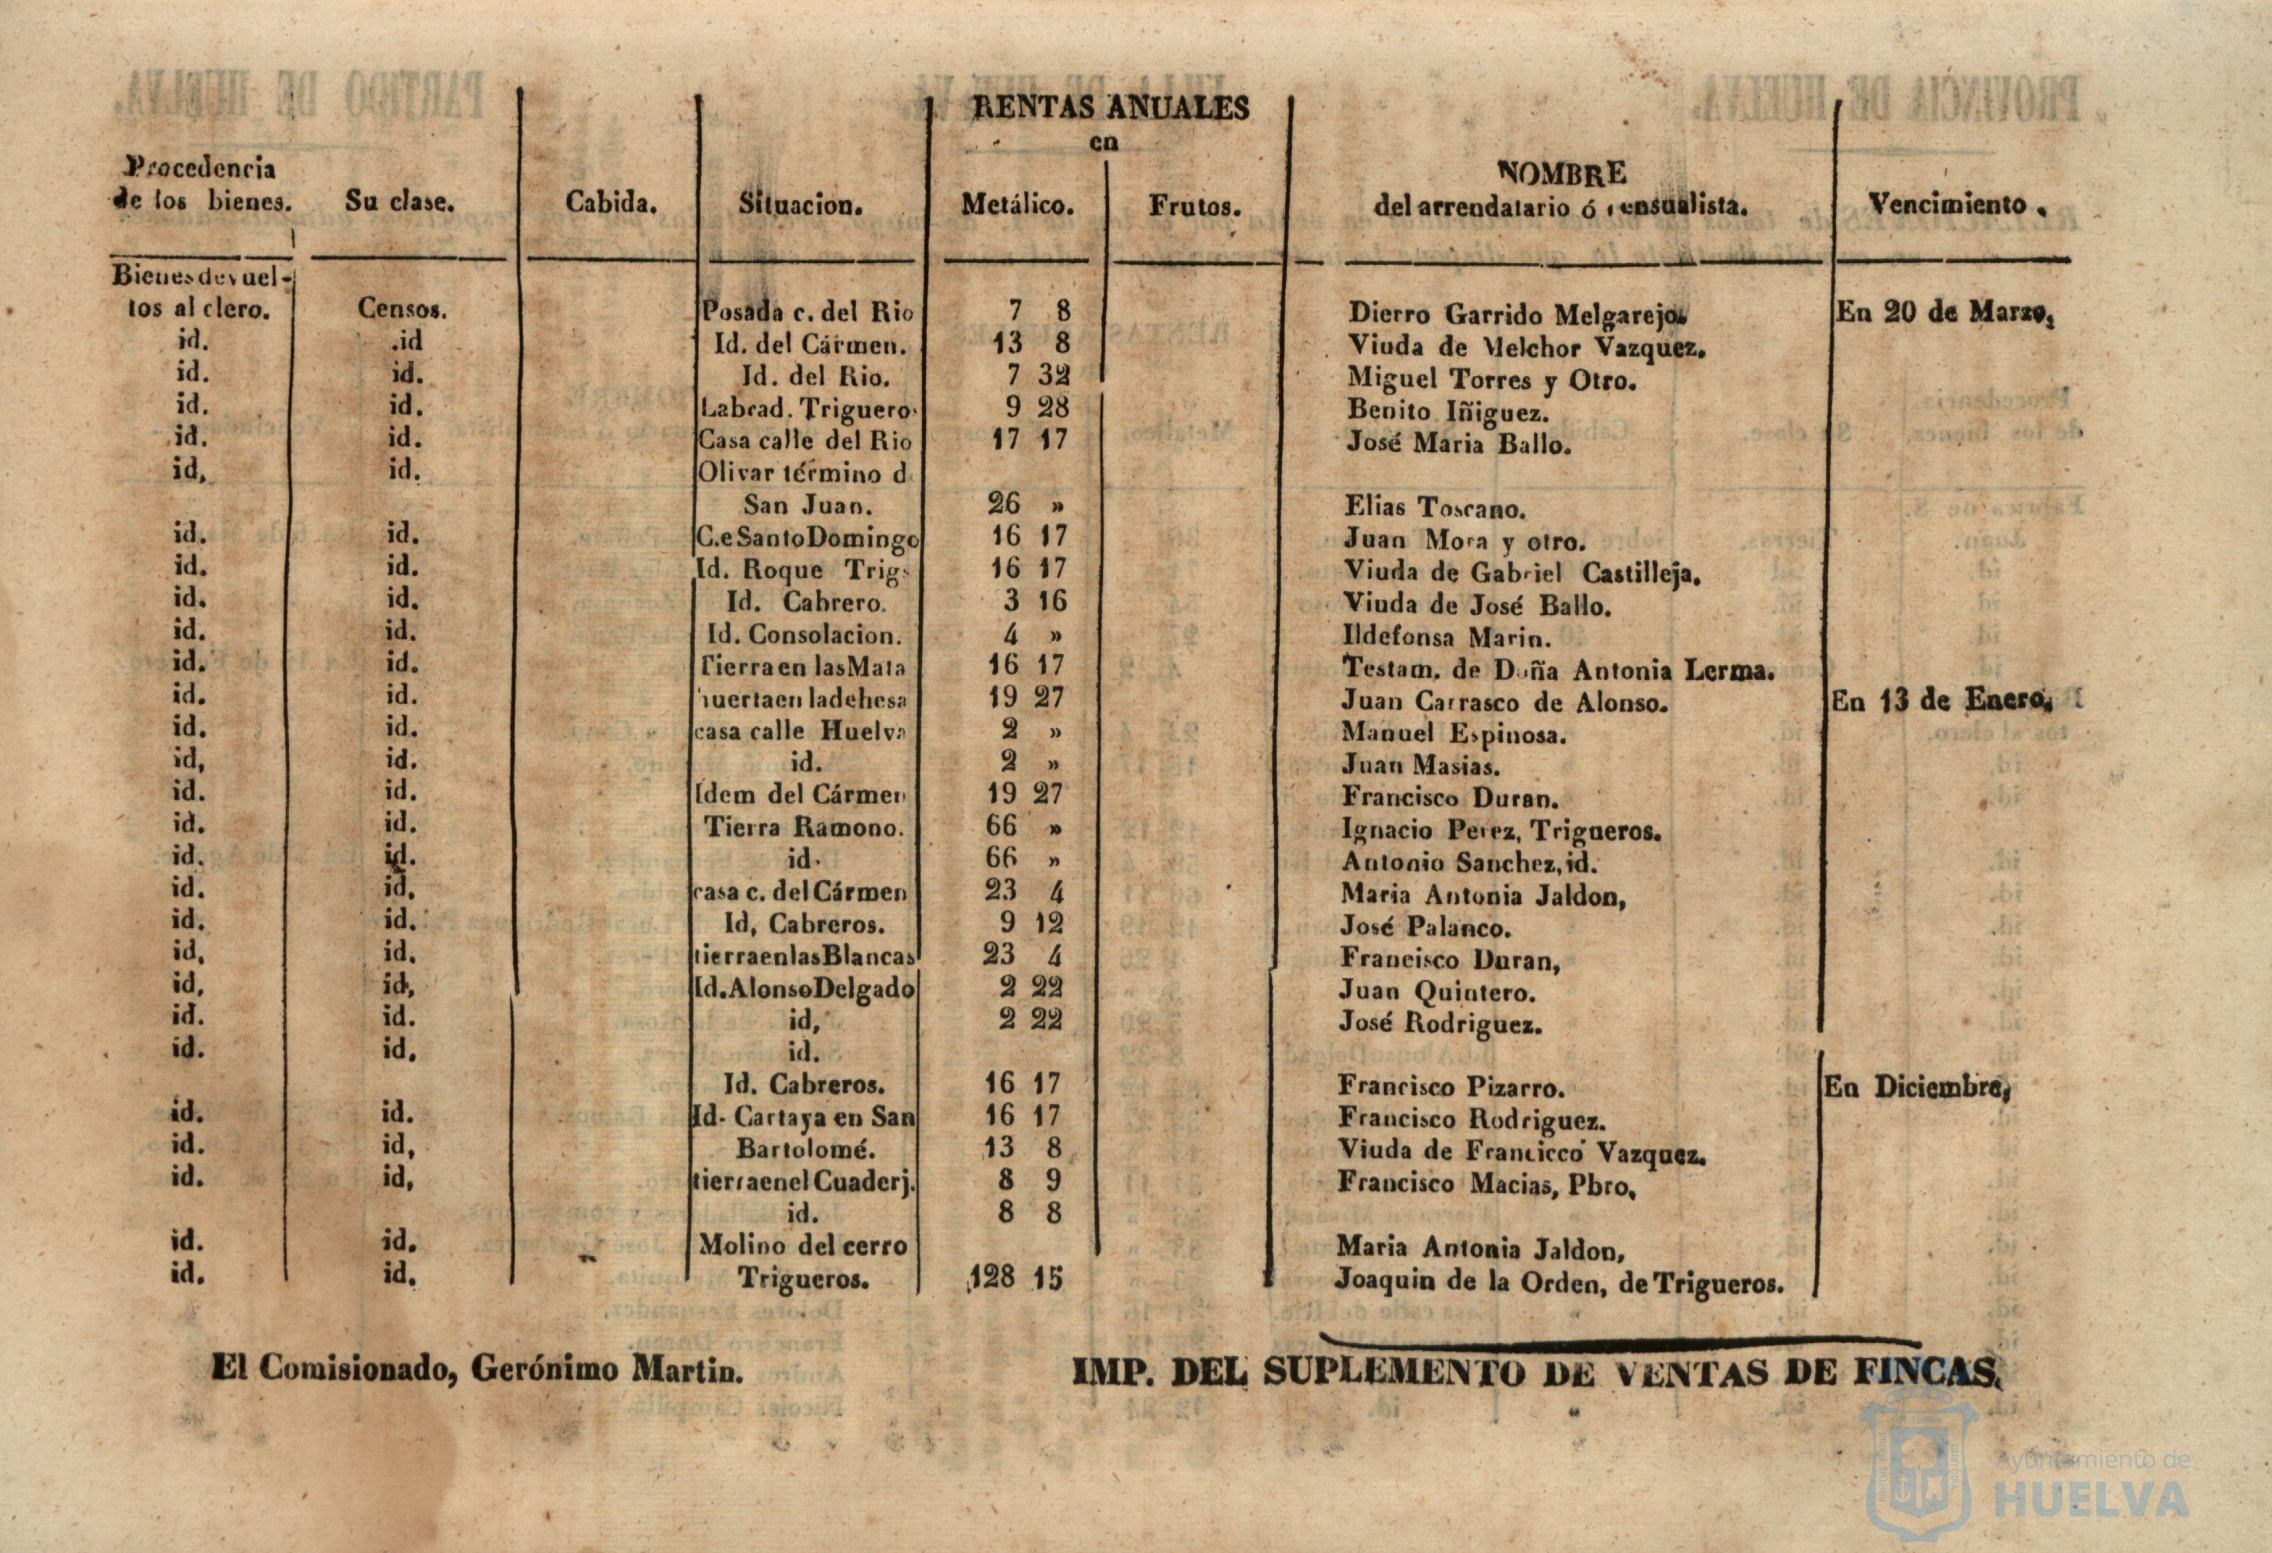 RENTAS ANUALES
en
Procedencia de los bienes. Su clase. Cabida. Situacion. Metálico. Frutos. NOMBRE del arrendatario ó censualista. Vencimiento.
Bienes devuel-
tos al clero. Censos. Posada c. del Rio 7 8 Dierro Garrido Melgarejo. En 20 de Marzo,
id. .id Id. del Cármen. 13 8 Viuda de Melchor Vazquez.
id. id. Id. del Rio. 7 32 Miguel Torres y Otro.
id. id. Labrad. Triguero 9 28 Benito Iñiguez.
id. id. Casa calle del Rio 17 17 José Maria Ballo.
id, id. Olivar término d
San Juan. 26 » Elias Toscano.
id. id. C.e Santo Domingo 16 17 Juan Mora y otro.
id. id. Id. Roque Trigs 16 17 Viuda de Gabriel Castilleja.
id. id. Id. Cabrero. 3 16 Viuda de José Ballo.
id. id. Id. Consolacion. 4 » Ildefonsa Marin.
id. id. Tierra en las Mata 16 17 Testam. de Doña Antonia Lerma.
id. id. huerta en la dehesa 19 27 Juan Carrasco de Alonso. En 13 de Enero,
id. id. casa calle Huelva 2 » Manuel Espinosa.
id, id. id. 2 » Juan Masias.
id. id. Idem del Cármen 19 27 Francisco Duran.
id. id. Tierra Ramono. 66 » Ignacio Perez, Trigueros.
id. id. id. 66 » Antonio Sanchez, id.
id. id. casa c. del Cármen 23 4 Maria Antonia Jaldon,
id. id. Id, Cabreros. 9 12 José Palanco.
id, id. tierra en las Blancas 23 4 Francisco Duran,
id, id, Id. Alonso Delgado 2 22 Juan Quintero.
id. id. id, 2 22 José Rodriguez.
id. id, id.
Id. Cabreros. 16 17 Francisco Pizarro. En Diciembre,
id. id. Id- Cartaya en San 16 17 Francisco Rodriguez.
id. id, Bartolomé. 13 8 Viuda de Francicco Vazquez.
id. id, tierra en el Cuaderj. 8 9 Francisco Macias, Pbro,
id. 8 8
id. id. Molino del cerro Maria Antonia Jaldon,
id. id. Trigueros. 128 15 Joaquin de la Orden, de Trigueros.
El Comisionado, Gerónimo Martin. IMP. DEL SUPLEMENTO DE VENTAS DE FINCAS.
Ayuntamiento de
HUELVA